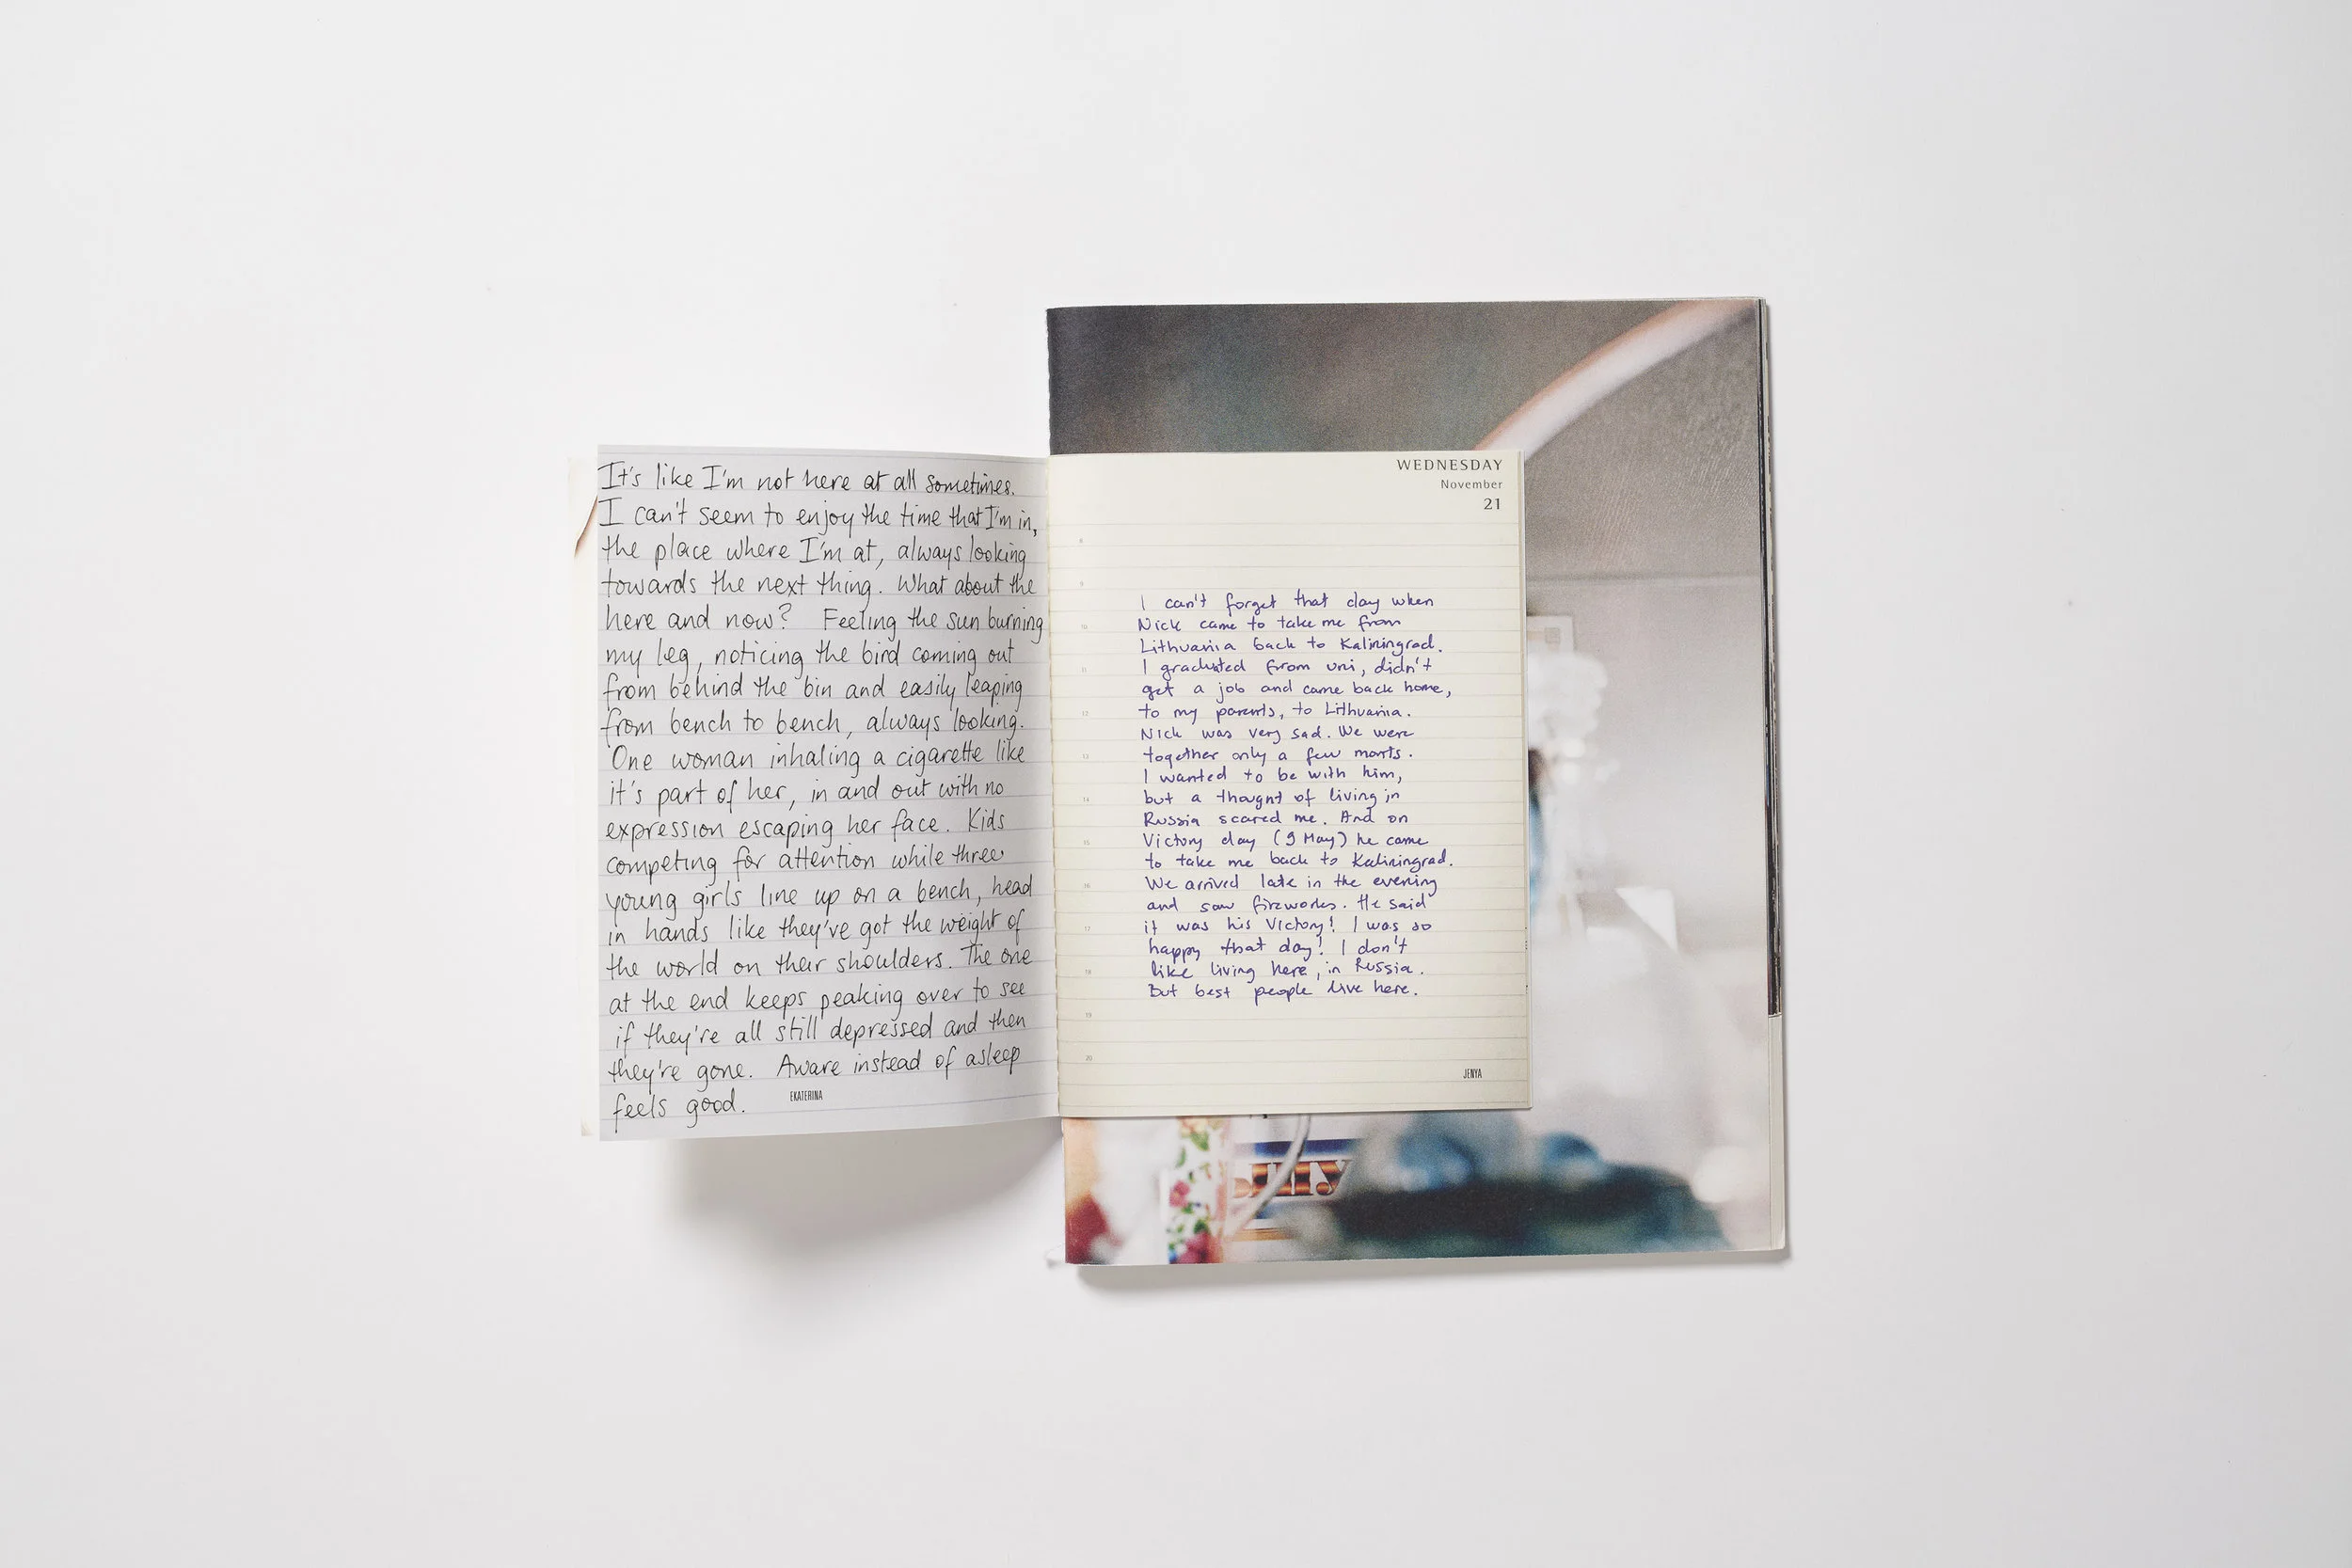 It's like I'm not here at all sometimes.
I can't seem to enjoy the time that I'm in,
the place where I'm at, always looking
towards the next thing. What about the
here and now? Feeling the sun burning
my leg, noticing the bird coming out
from behind the bin and easily leaping
from bench to bench, always looking.
One woman inhaling a cigarette like
it's part of her, in and out with no
expression escaping her face. Kids
competing for attention while three
young girls line up on a bench, head
in hands like they've got the weight of
the world on their shoulders. The one
at the end keeps peaking over to see
if they're all still depressed and then
they're gone. Aware instead of asleep
feels good.
EKATERINA
WEDNESDAY
November
21
8
9
10
11
12
13
14
15
16
17
18
19
20
I can't forget that day when
Nick came to take me from
Lithuania back to Kaliningrad.
I graduated from uni, didn't
get a job and came back home,
to my parents, to Lithuania.
Nick was very sad. We were
together only a few monts.
I wanted to be with him,
but a thougnt of living in
Russia scared me. And on
Victory day (9 May) he came
to take me back to Kaliningrad.
We arrived late in the evening
and saw fireworks. He said
it was his Victory! I was so
happy that day! I don't
like living here, in Russia.
But best people live here.
JENYA